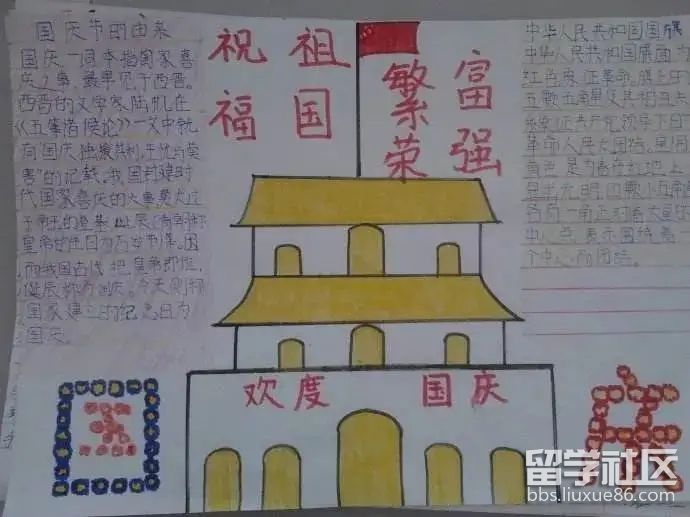 国庆节的由来
国庆一词本指国家喜
庆之事，最早见于西晋。
西晋的文学家陆机在
《五等诸侯论》一文中就
有国庆独飨其利，主忧与莫
害"的记载、我国封建时
代国家喜庆的大事莫大过
于帝王的登基、诞辰
皇帝
而我国古代把皇帝即位、
诞辰称为国庆。今天则称
国家建立的纪念日为
国庆
祝祖
福国
繁富
荣强
中华人民共和国国旗
中华人民共和国旗面为
红色象征革命，旗上
五颗五角星及其相互关
系象征共产党领导下
革命人民大团结，星用
黄色是为着在红地上
显出光明，四颗小五角
各有一角正对着大星的
中心点，表示围绕着一
个中心而团结。
欢度 国庆
国 庆
留学社区
bbs.liuxue86.com